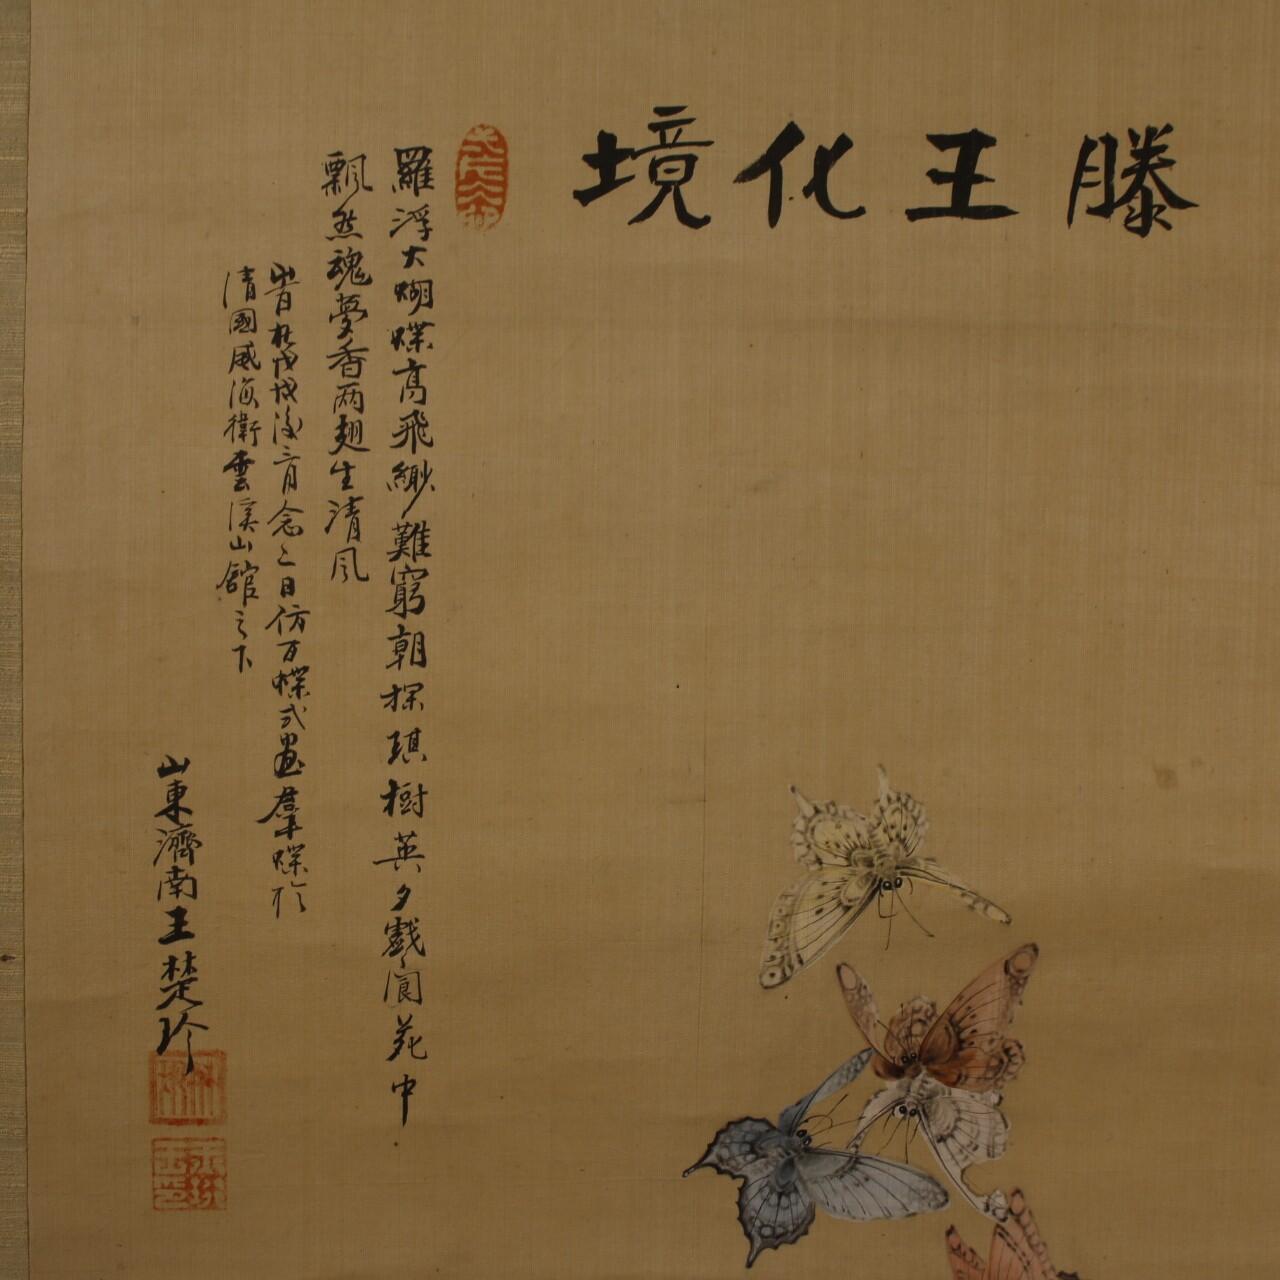 滕王化境
羅浮大蝴蝶高飛緲難窮朝探琪樹英夕戲閬苑中
飄然魂夢香兩翅生清風
時在戊戌後三月念二日仿百蝶式畫羣蝶於
清國威海衛雲溪山館之下
山東濟南王楚珍